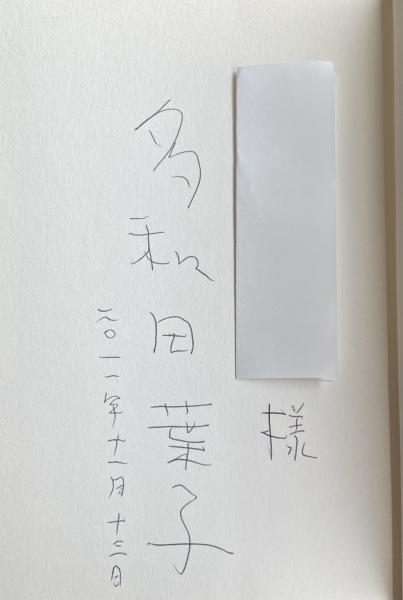 様
多和田葉子
二〇一一年十一月十三日